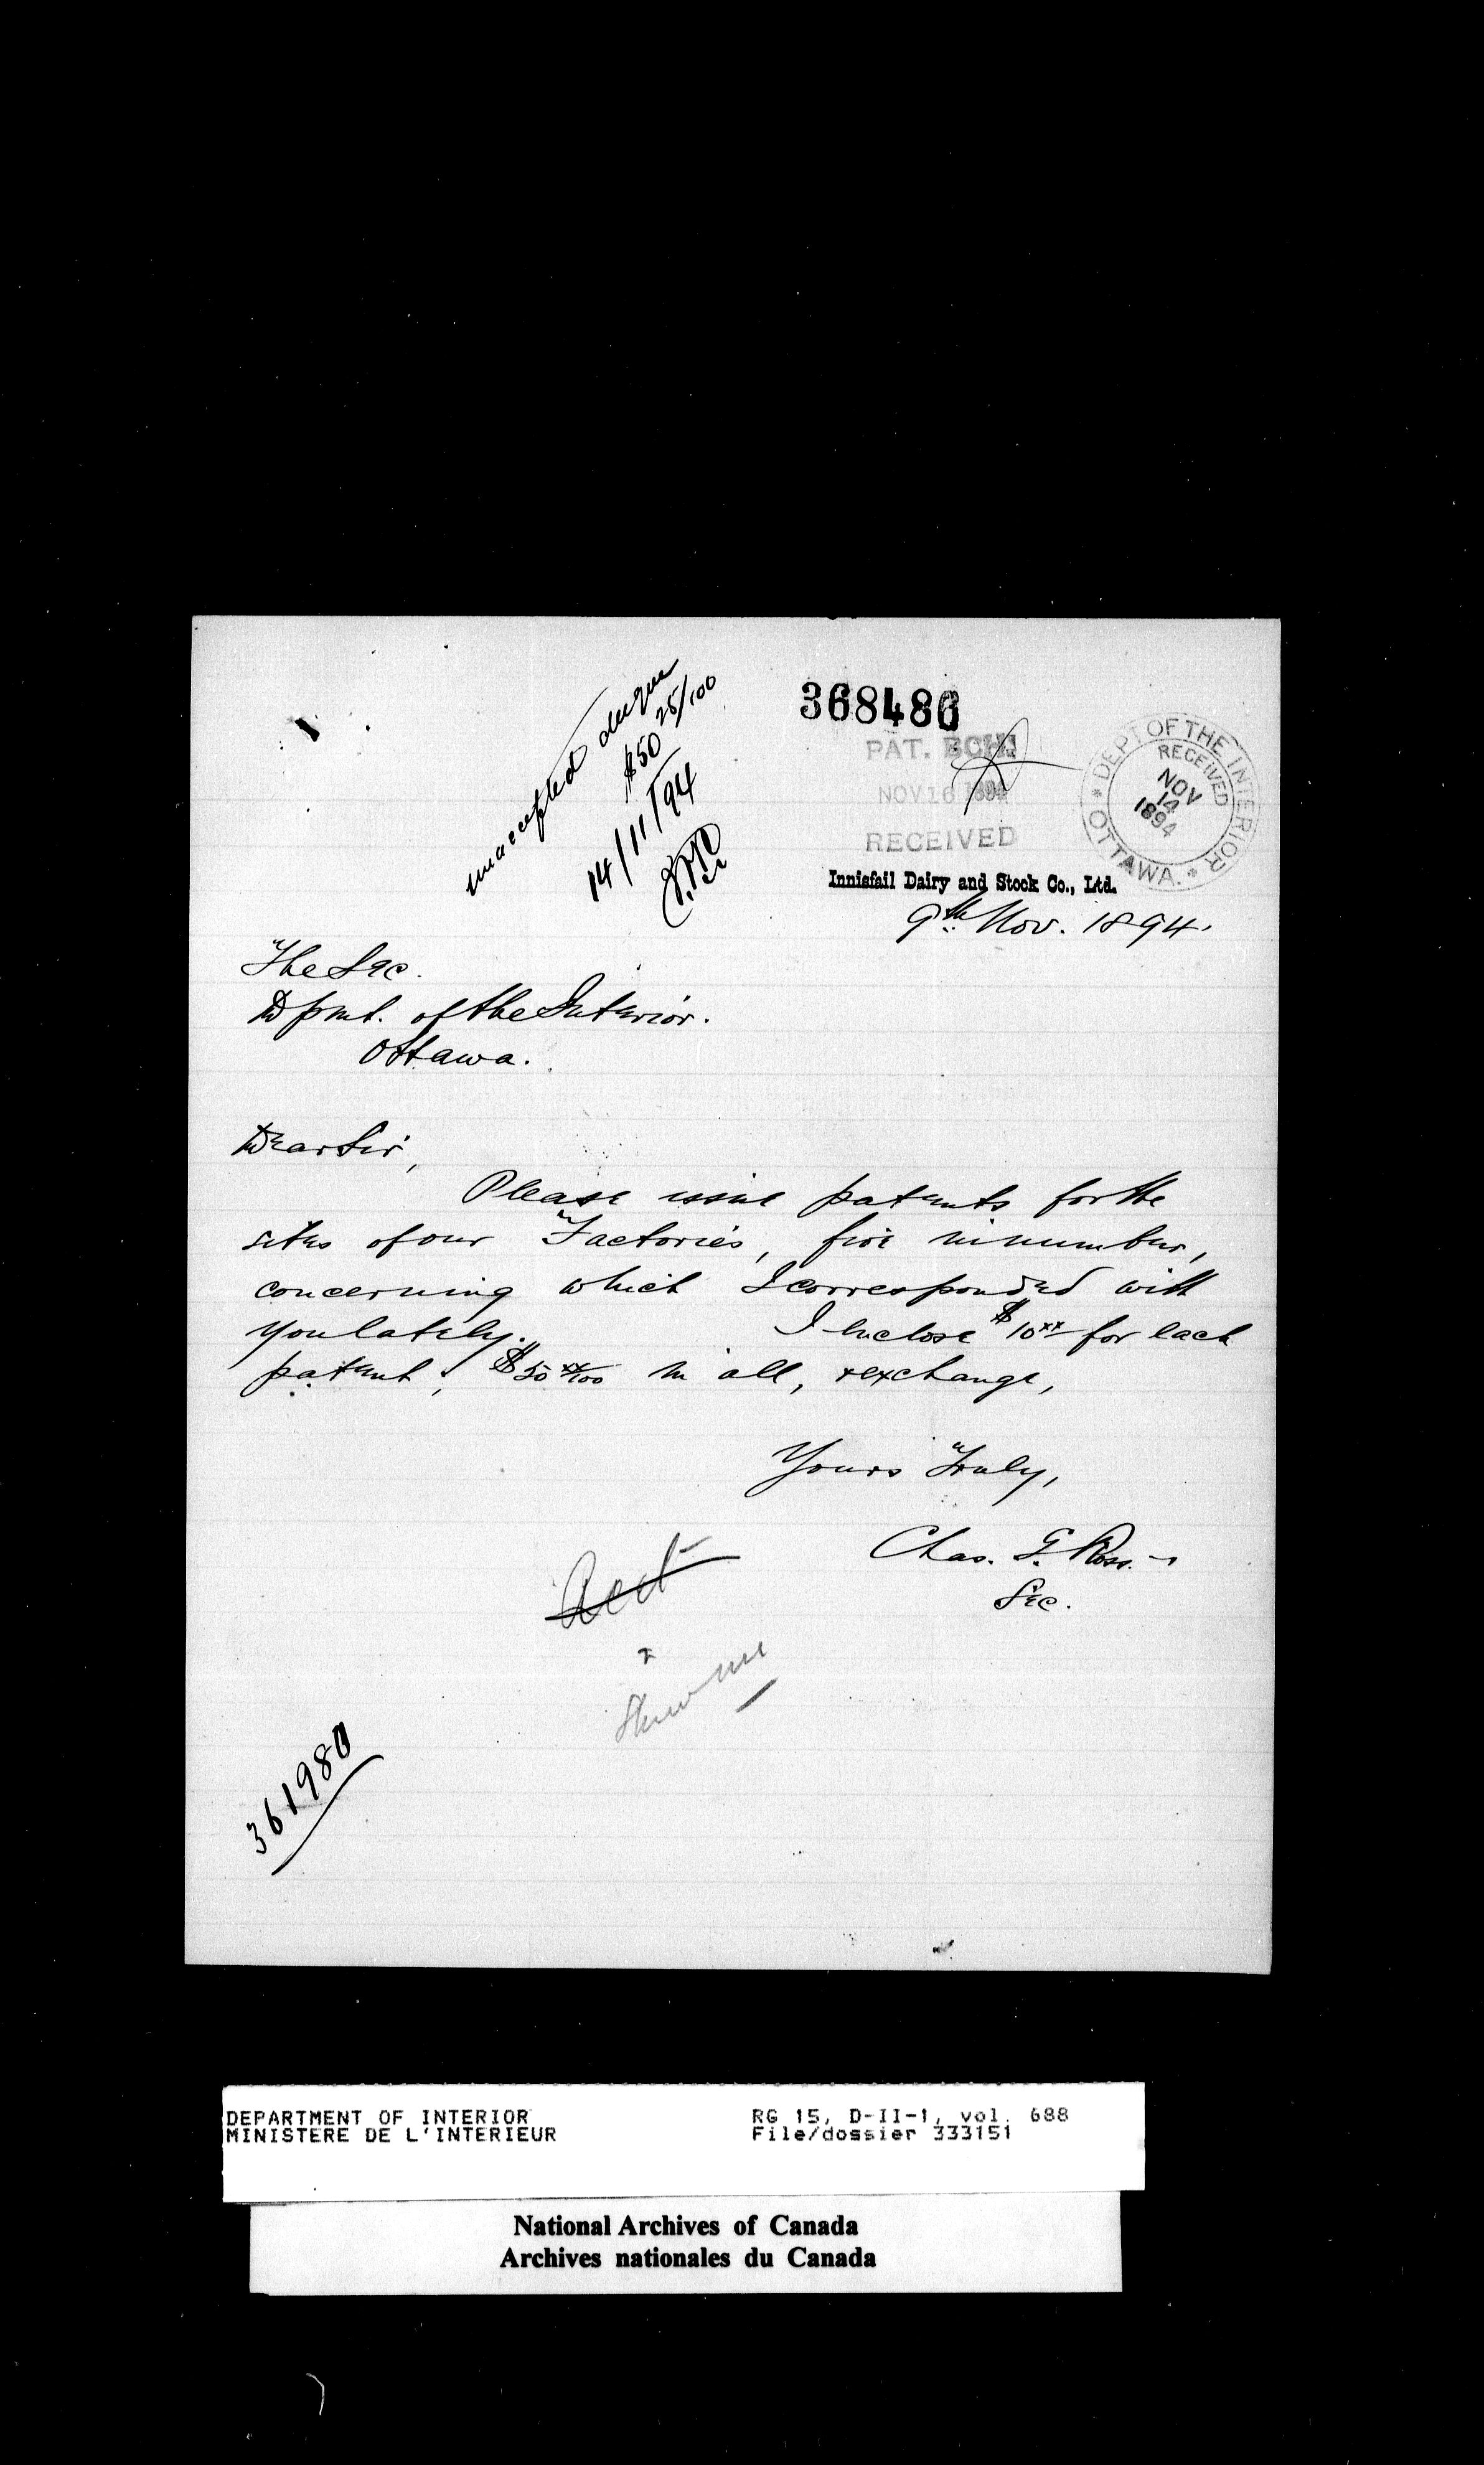 unaccepted cheque
$50 25/100
14/11/94
368486
PAT. BCH.
NOV 16 1894
RECEIVED
DEPT OF THE INTERIOR
OTTAWA.
RECEIVED
NOV
14
1894
Innisfail Dairy and Stock Co., Ltd.
9th Nov. 1894.
The Sec.
Dpmt. of the Interior.
Ottawa.
Dear Sir,
Please issue patents for the
sites of our Factories, five in number,
concerning which I corresponded with
you lately. I enclose $10xx for each
patent; $50 xx/100 in all, & exchange,
Yours Truly,
Chas. G. Ross.
Sec.
Acct
Show me
361980
DEPARTMENT OF INTERIOR RG 15, D-II-1, vol. 688
MINISTERE DE L'INTERIEUR File/dossier 333151
National Archives of Canada
Archives nationales du Canada